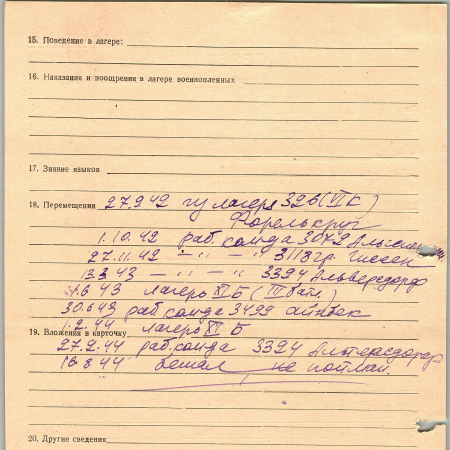 15. Поведение в лагере:
16. Наказания и поощрения в лагере военнопленных
17. Знание языков
18. Перемещения 27.9.42 гулагеря 326 (VI К)
Форелькруг
1.10.42 раб. комда 3072
27.11.42 — " — " 3118 гр. Гиссен
13.3.43 — " — " 3394 Альверсдорф
4.6.43 лагерь XI Б (III бат.)
30.6.43 раб команда 3499
19. Вложения в карточку
1.2.44 лагерь XI Б
27.2.44 раб. комда 3394 Альтерсдорф
16.8.44 бежал не пойман.
20. Другие сведения